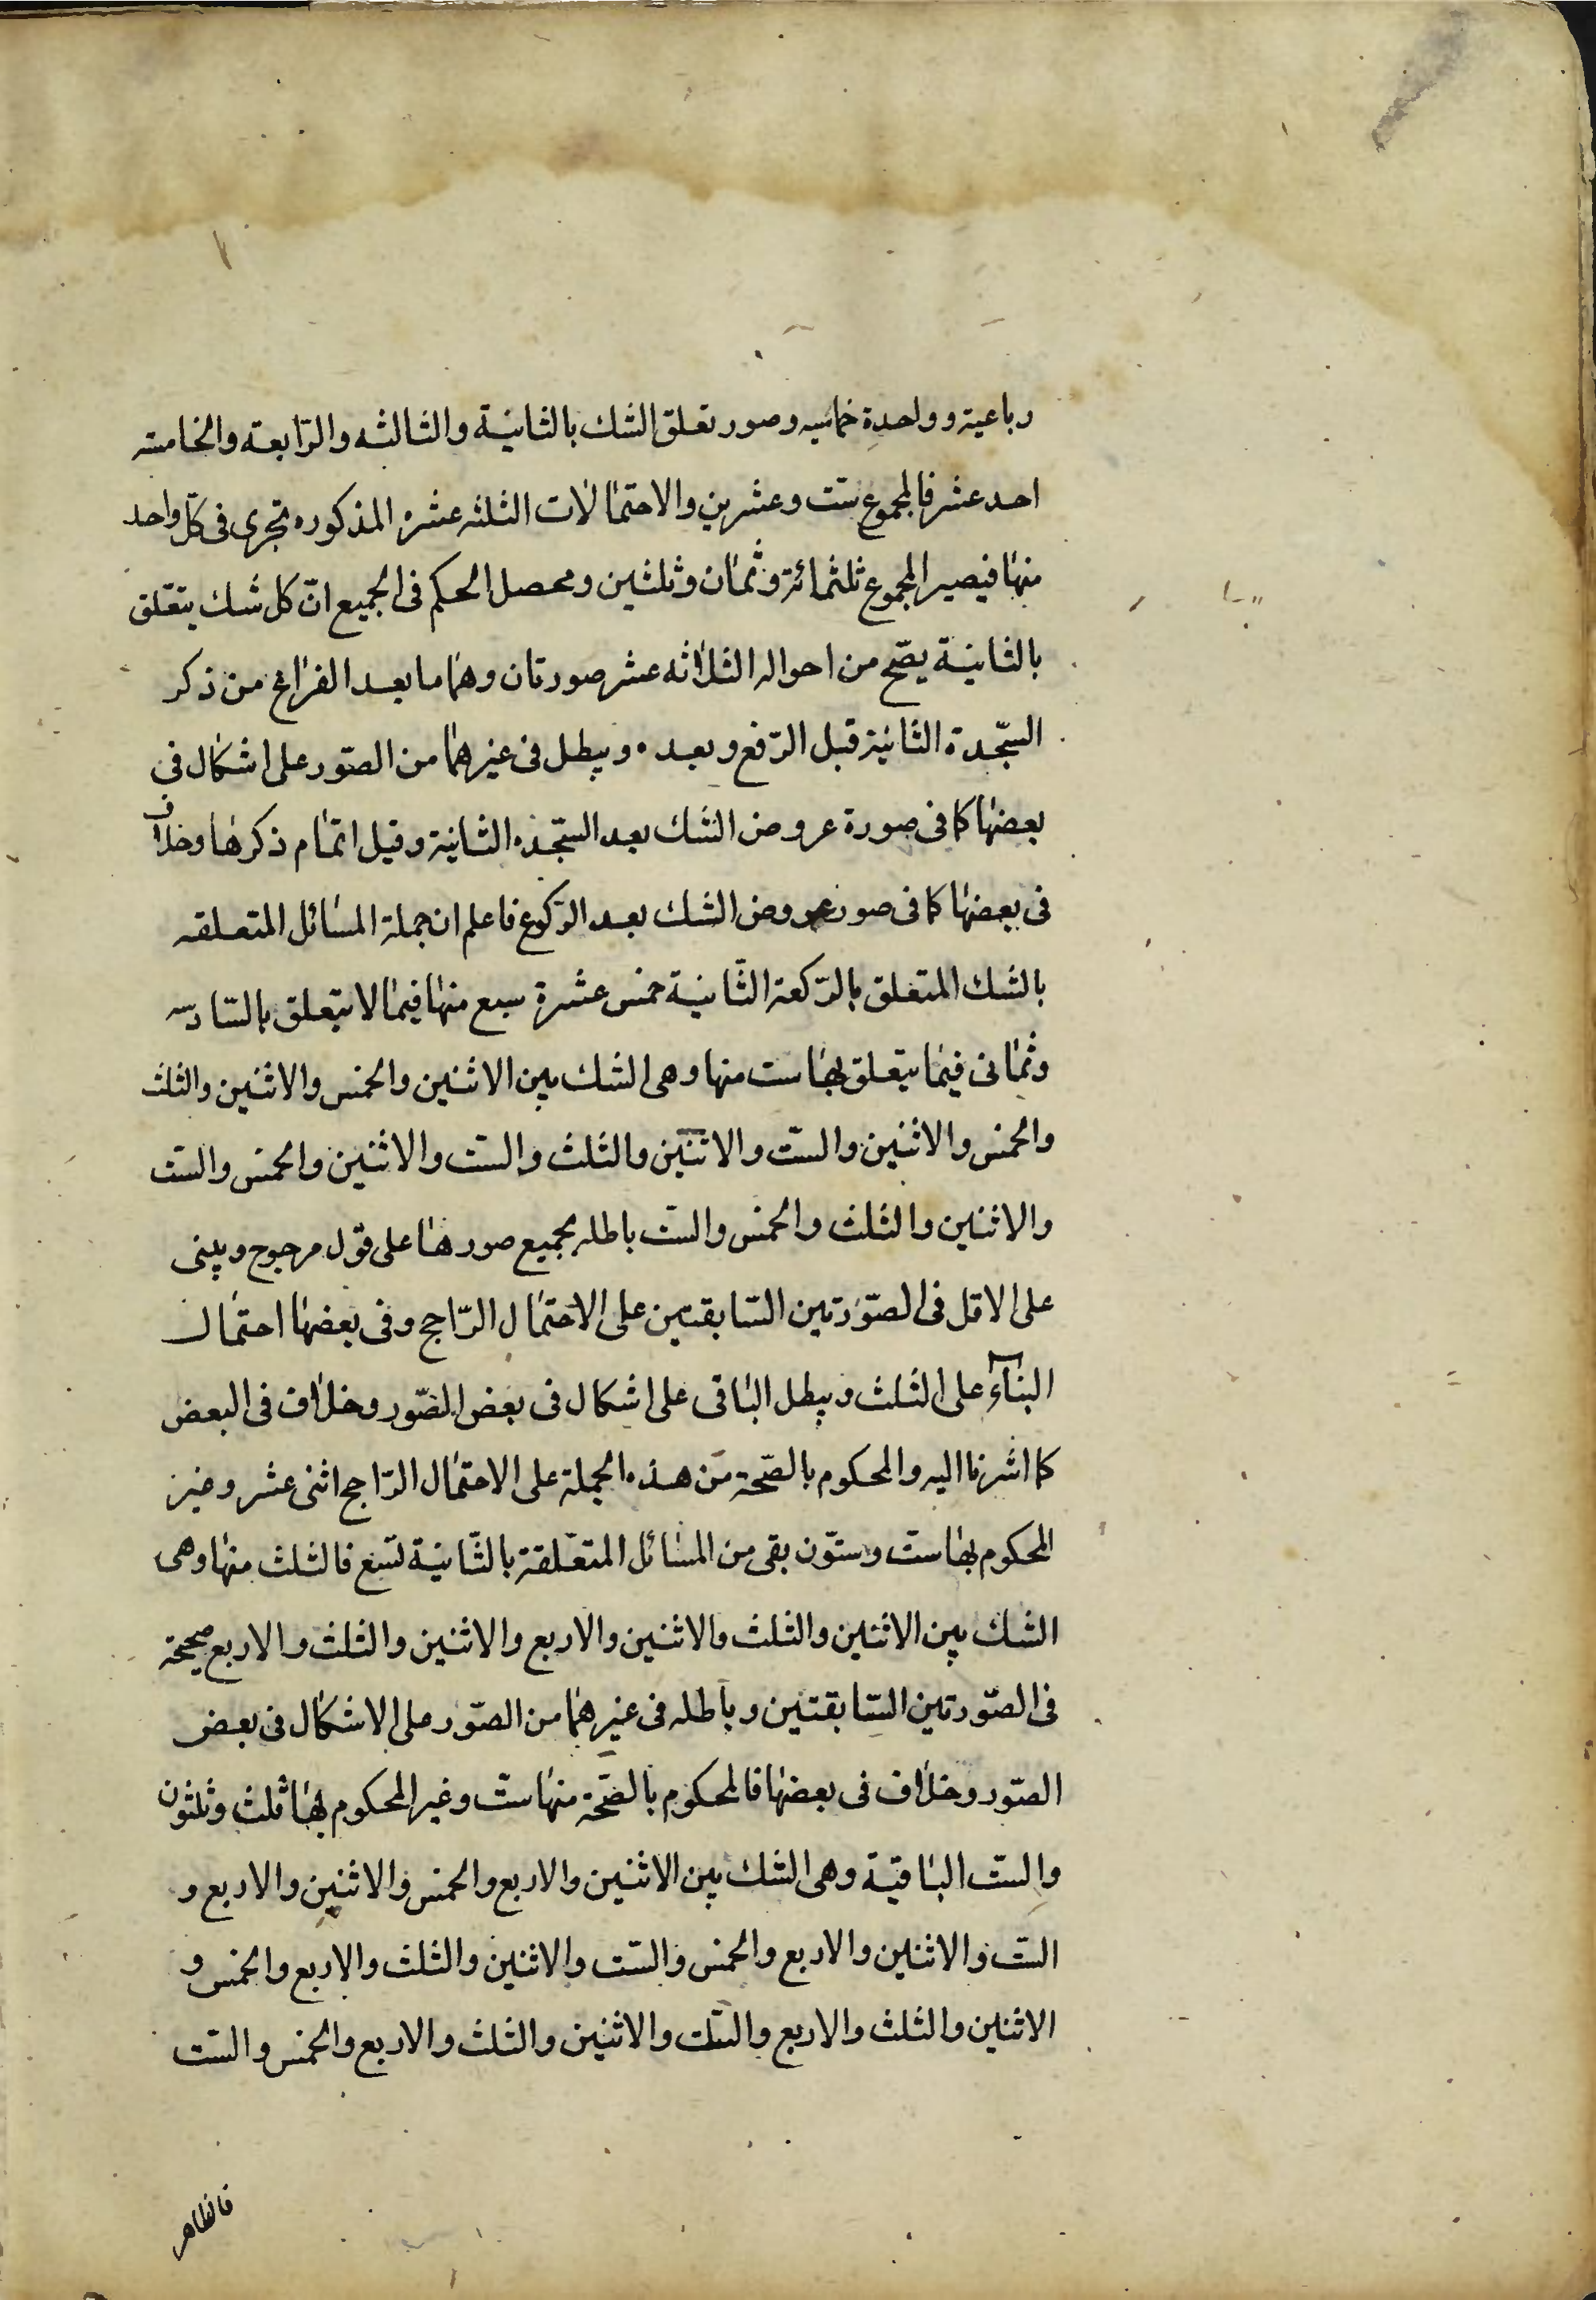 رباعية وواحدة خماسيه وصور تعلق الشك بالثانية والثالثه والرّابعة والخامسة
احد عشر فالمجموع ستت وعشرين والاحتمالات الثلثه عشره المذكوره تجرى فى كلّ واحد
منها فيصير المجموع ثلثمائة وثمان وثلثين ومحصل الحكم فى الجميع انّ كل شك يتعلق
بالثانية يصّح من احواله الثلاثه عشر صورتان وهما ما بعد الفراغ من ذكر
السّجدة الثانية قبل الرّفع وبعده ويبطل فى غيرهما من الصّور على اشكال فى
بعضها كما فى صورة عروض الشك بعد السّجده الثانية وقبل اتمام ذكرها وخلاف
فى بعضها كما فى صور عروض الشك بعد الرّكوع فاعلم ان جملة المسائل المتعلقه
بالشك المتعلق بالرّكعة الثّانية خمس عشرة سبع منها فيما لا يتعلق بالسّادسه
وثمانى فيما يتعلق بها ست منها وهى الشك بين الاثنين والخمس والاثنين والثلث
والخمس والاثنين والستّ والاثنين والثلث والستت والاثنين والخمس والستت
والاثنين والثلث والخمس والستّ باطله بجميع صورها على قول مرجوح ويبنى
على الاقل فى الصّورتين السّابقتين على الاحتمال الرّاجح وفى بعضها احتمال
البناء على الثلث ويبطل الباقى على اشكال فى بعض الصّور وخلاف فى البعض
كما اشرنا اليه والمحكوم بالصّحة من هذه الجملة على الاحتمال الرّاجح اثنى عشر وغير
المحكوم بها ستّ وستّون بقى من المسائل المتعلّقة بالثّانية تسع فالثلث منها وهى
الشك بين الاثنين والثلث والاثنين والاربع والاثنين والثلث والاربع صحيحة
فى الصّورتين السّابقتين وباطله فى غيرهما من الصّور على الاشكال فى بعض
الصّور وخلاف فى بعضها فالمحكوم بالصّحة منها ستّ وغير المحكوم بها ثلث وثلثون
والستّ الباقيّة وهى الشك بين الاثنين والاربع والخمس والاثنين والاربع و
الستّ والاثنين والاربع والخمس والستت والاثنين والثلث والاربع والخمس و
الاثنين والثلث والاربع والستّ والاثنين والثلث والاربع والخمس والستت
فالظاهر